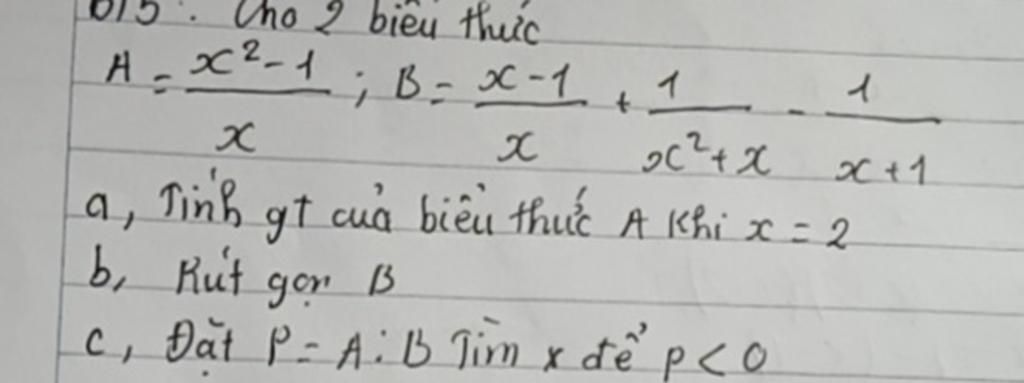 B15. Cho 2 biểu thức
A = \frac{x^2-1}{x} ; B = \frac{x-1}{x} + \frac{1}{x^2+x} - \frac{1}{x+1}
a, Tính gt của biểu thức A khi x = 2
b, Rút gọn B
c, Đặt P = A : B Tìm x để P < 0